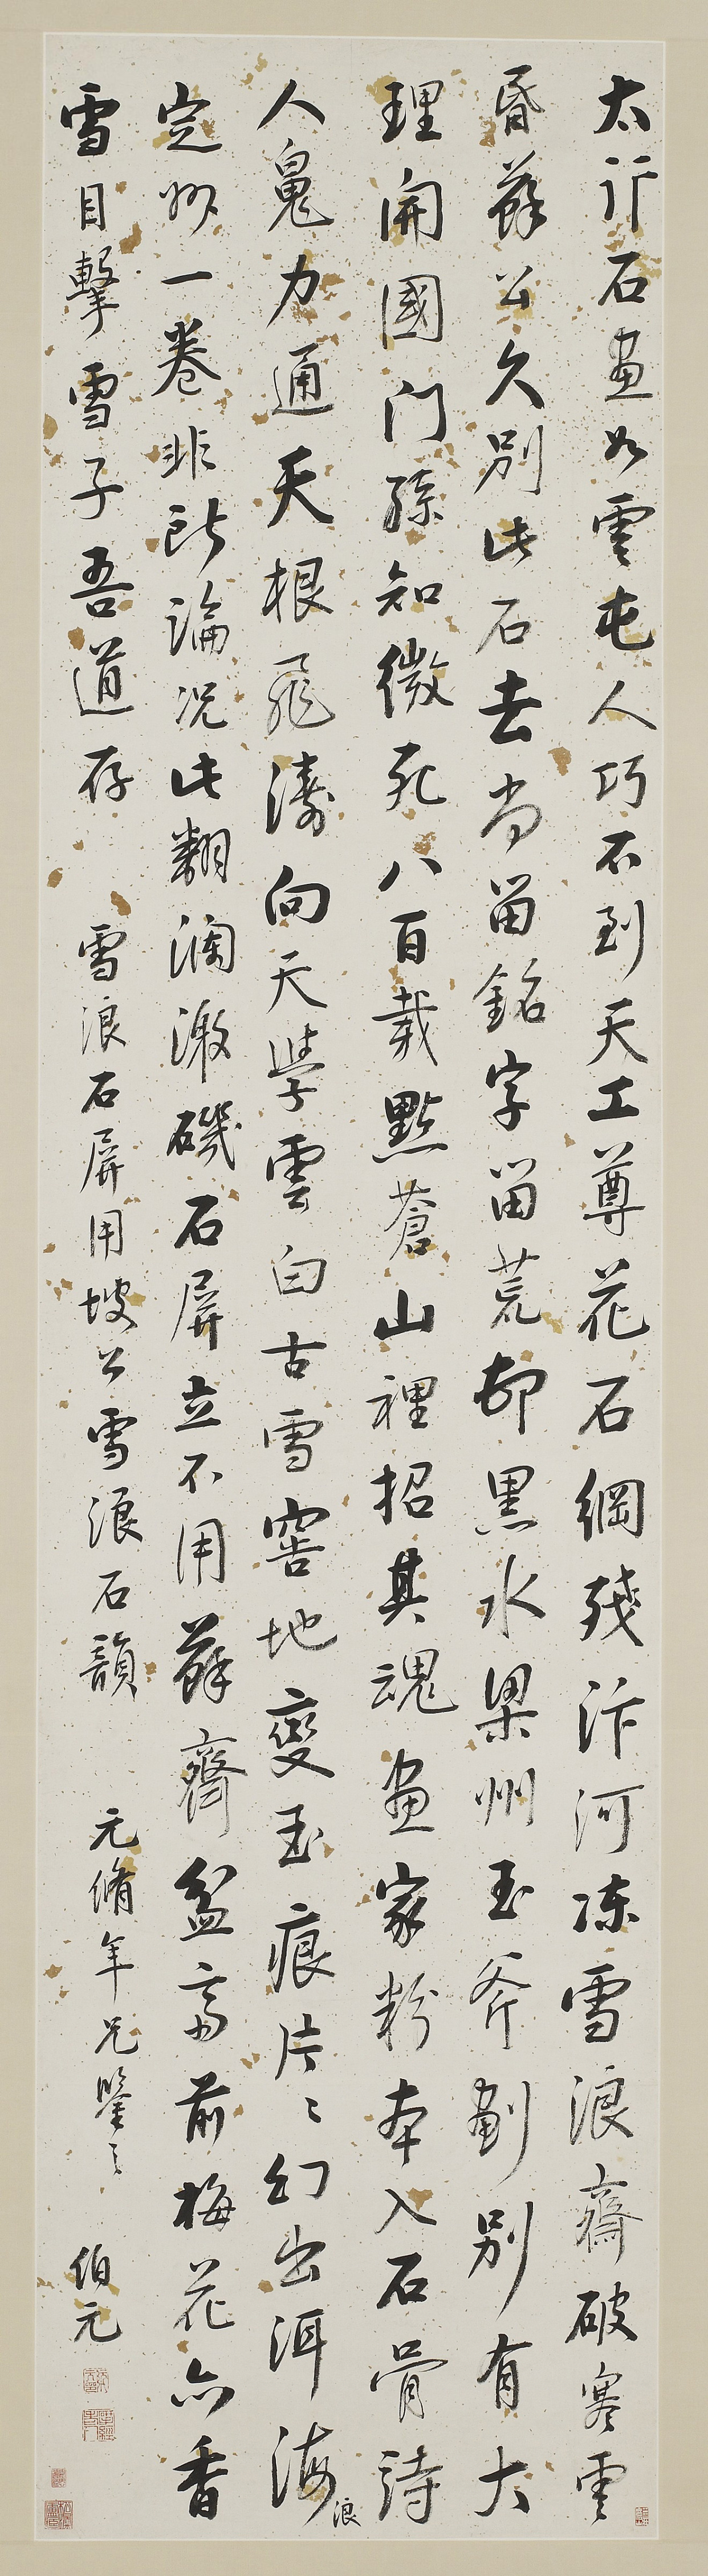 太行石畫如雲屯人巧不到天工尊花石綱殘汴河凍雪浪齋破寒雲
昏蘇公久別此石去尚留銘字留荒邨黑水梁州玉斧劃別有大
理開國門孫知微死八百載點蒼山裡招其魂畫家粉本入石骨詩
人鬼力通天根飛濤向天學雲白古雪窖地變玉痕片片幻出洱海浪
定州一卷非所論況此翻瀾激磯石屏立不用蘇齋盆齋前梅花亦香
雪目擊雪子吾道存
雪浪石屏用坡公雪浪石韻
元脩年兄鑒之
伯元